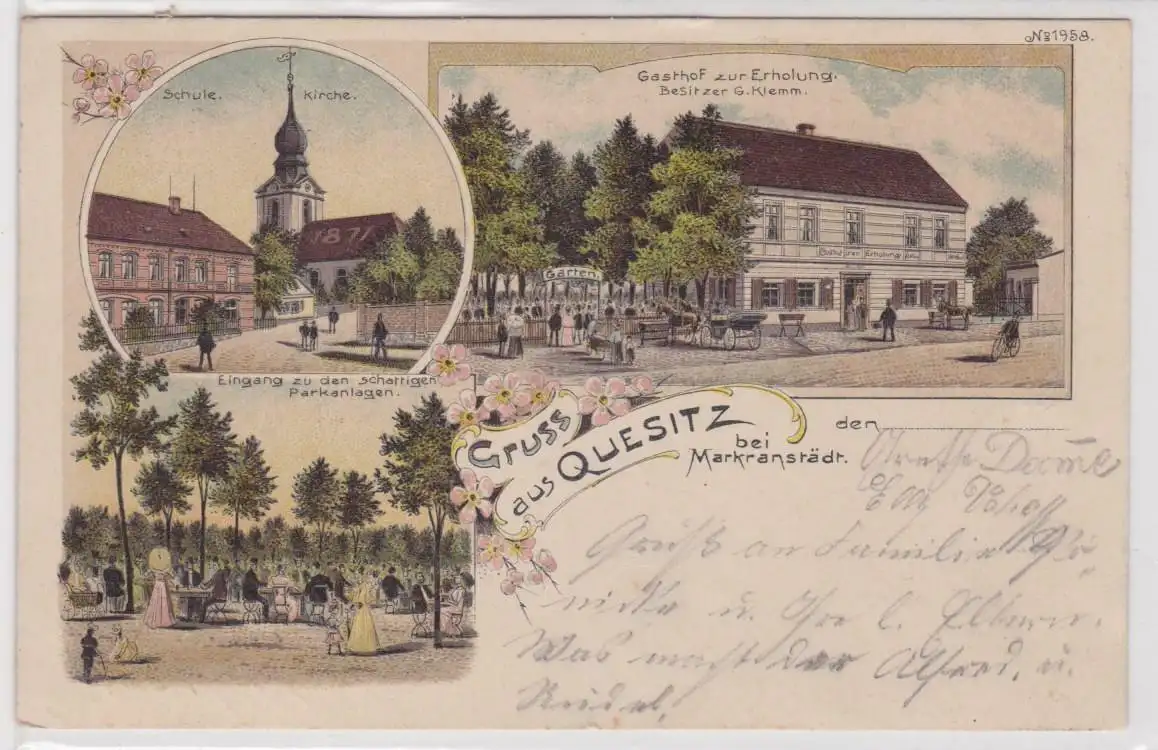 No 1958.
Schule. Kirche.
1871
Gasthof zur Erholung.
Besitzer G. Klemm.
Garten
Gasthof zur Erholung
Eingang zu den schattigen
Parkanlagen.
Gruss
aus QUESITZ
bei
Markranstädt.
den
Gruß an Familie
u. Ihre l. Eltern.
Was macht der Alfred, u.